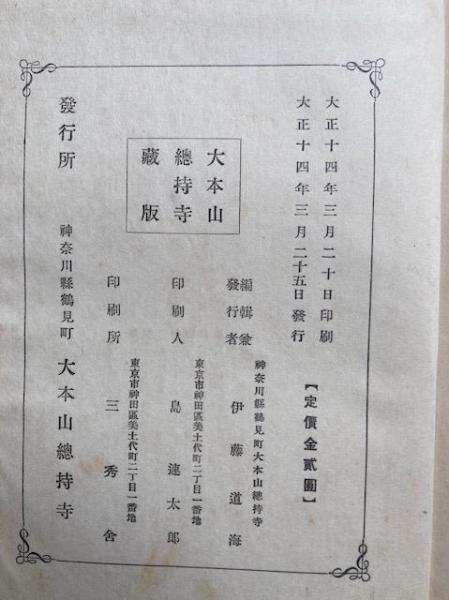 大正十四年三月二十日印刷
大正十四年三月二十五日發行
【定價金貳圓】
大本山
總持寺
藏版
編輯兼
發行者
神奈川縣鶴見町大本山總持寺
伊藤道海
印刷人
東京市神田區美土代町二丁目一番地
島連太郎
印刷所
東京市神田區美土代町二丁目一番地
三秀舍
發行所
神奈川縣鶴見町
大本山總持寺